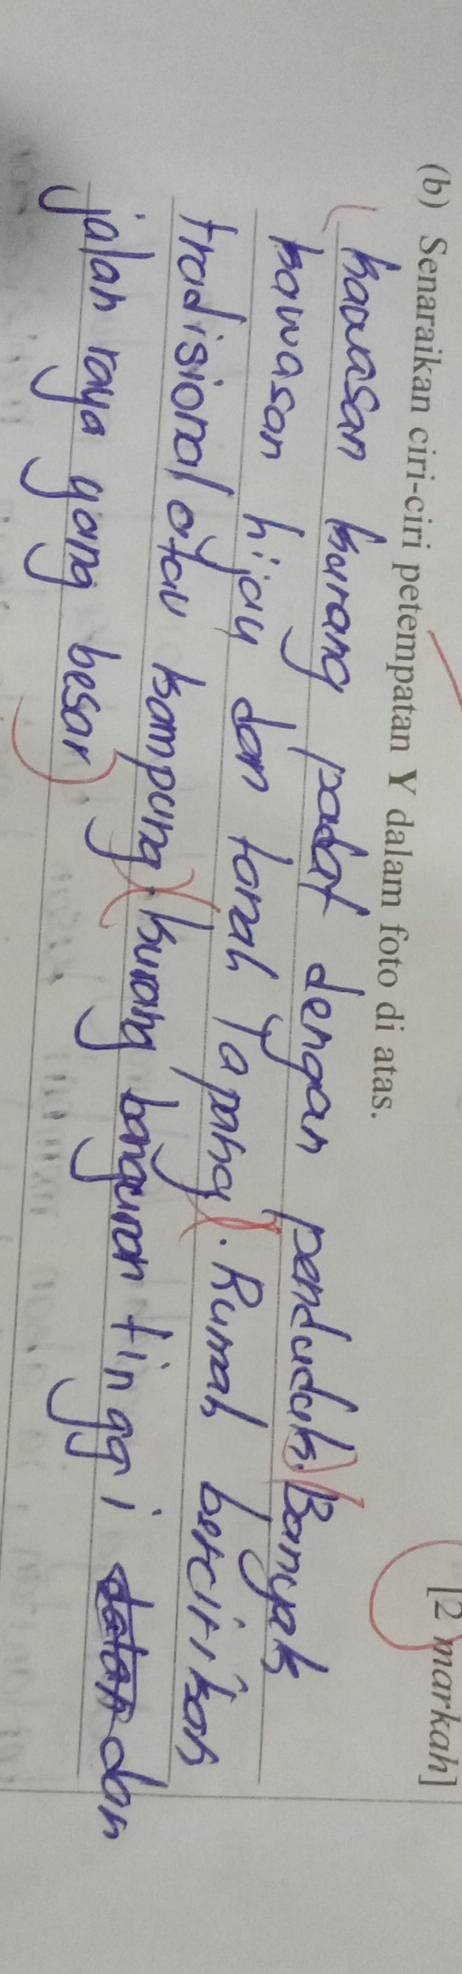 (b) Senaraikan ciri-ciri petempatan Y dalam foto di atas.
[2 markah]
kawasan kurang padat dengan penduduk. Banyak
kawasan hijau dan tanah lapang. Rumah bercirikan
tradisional atau kampung. kurang bangunan tinggi dan
jalan raya yang besar.